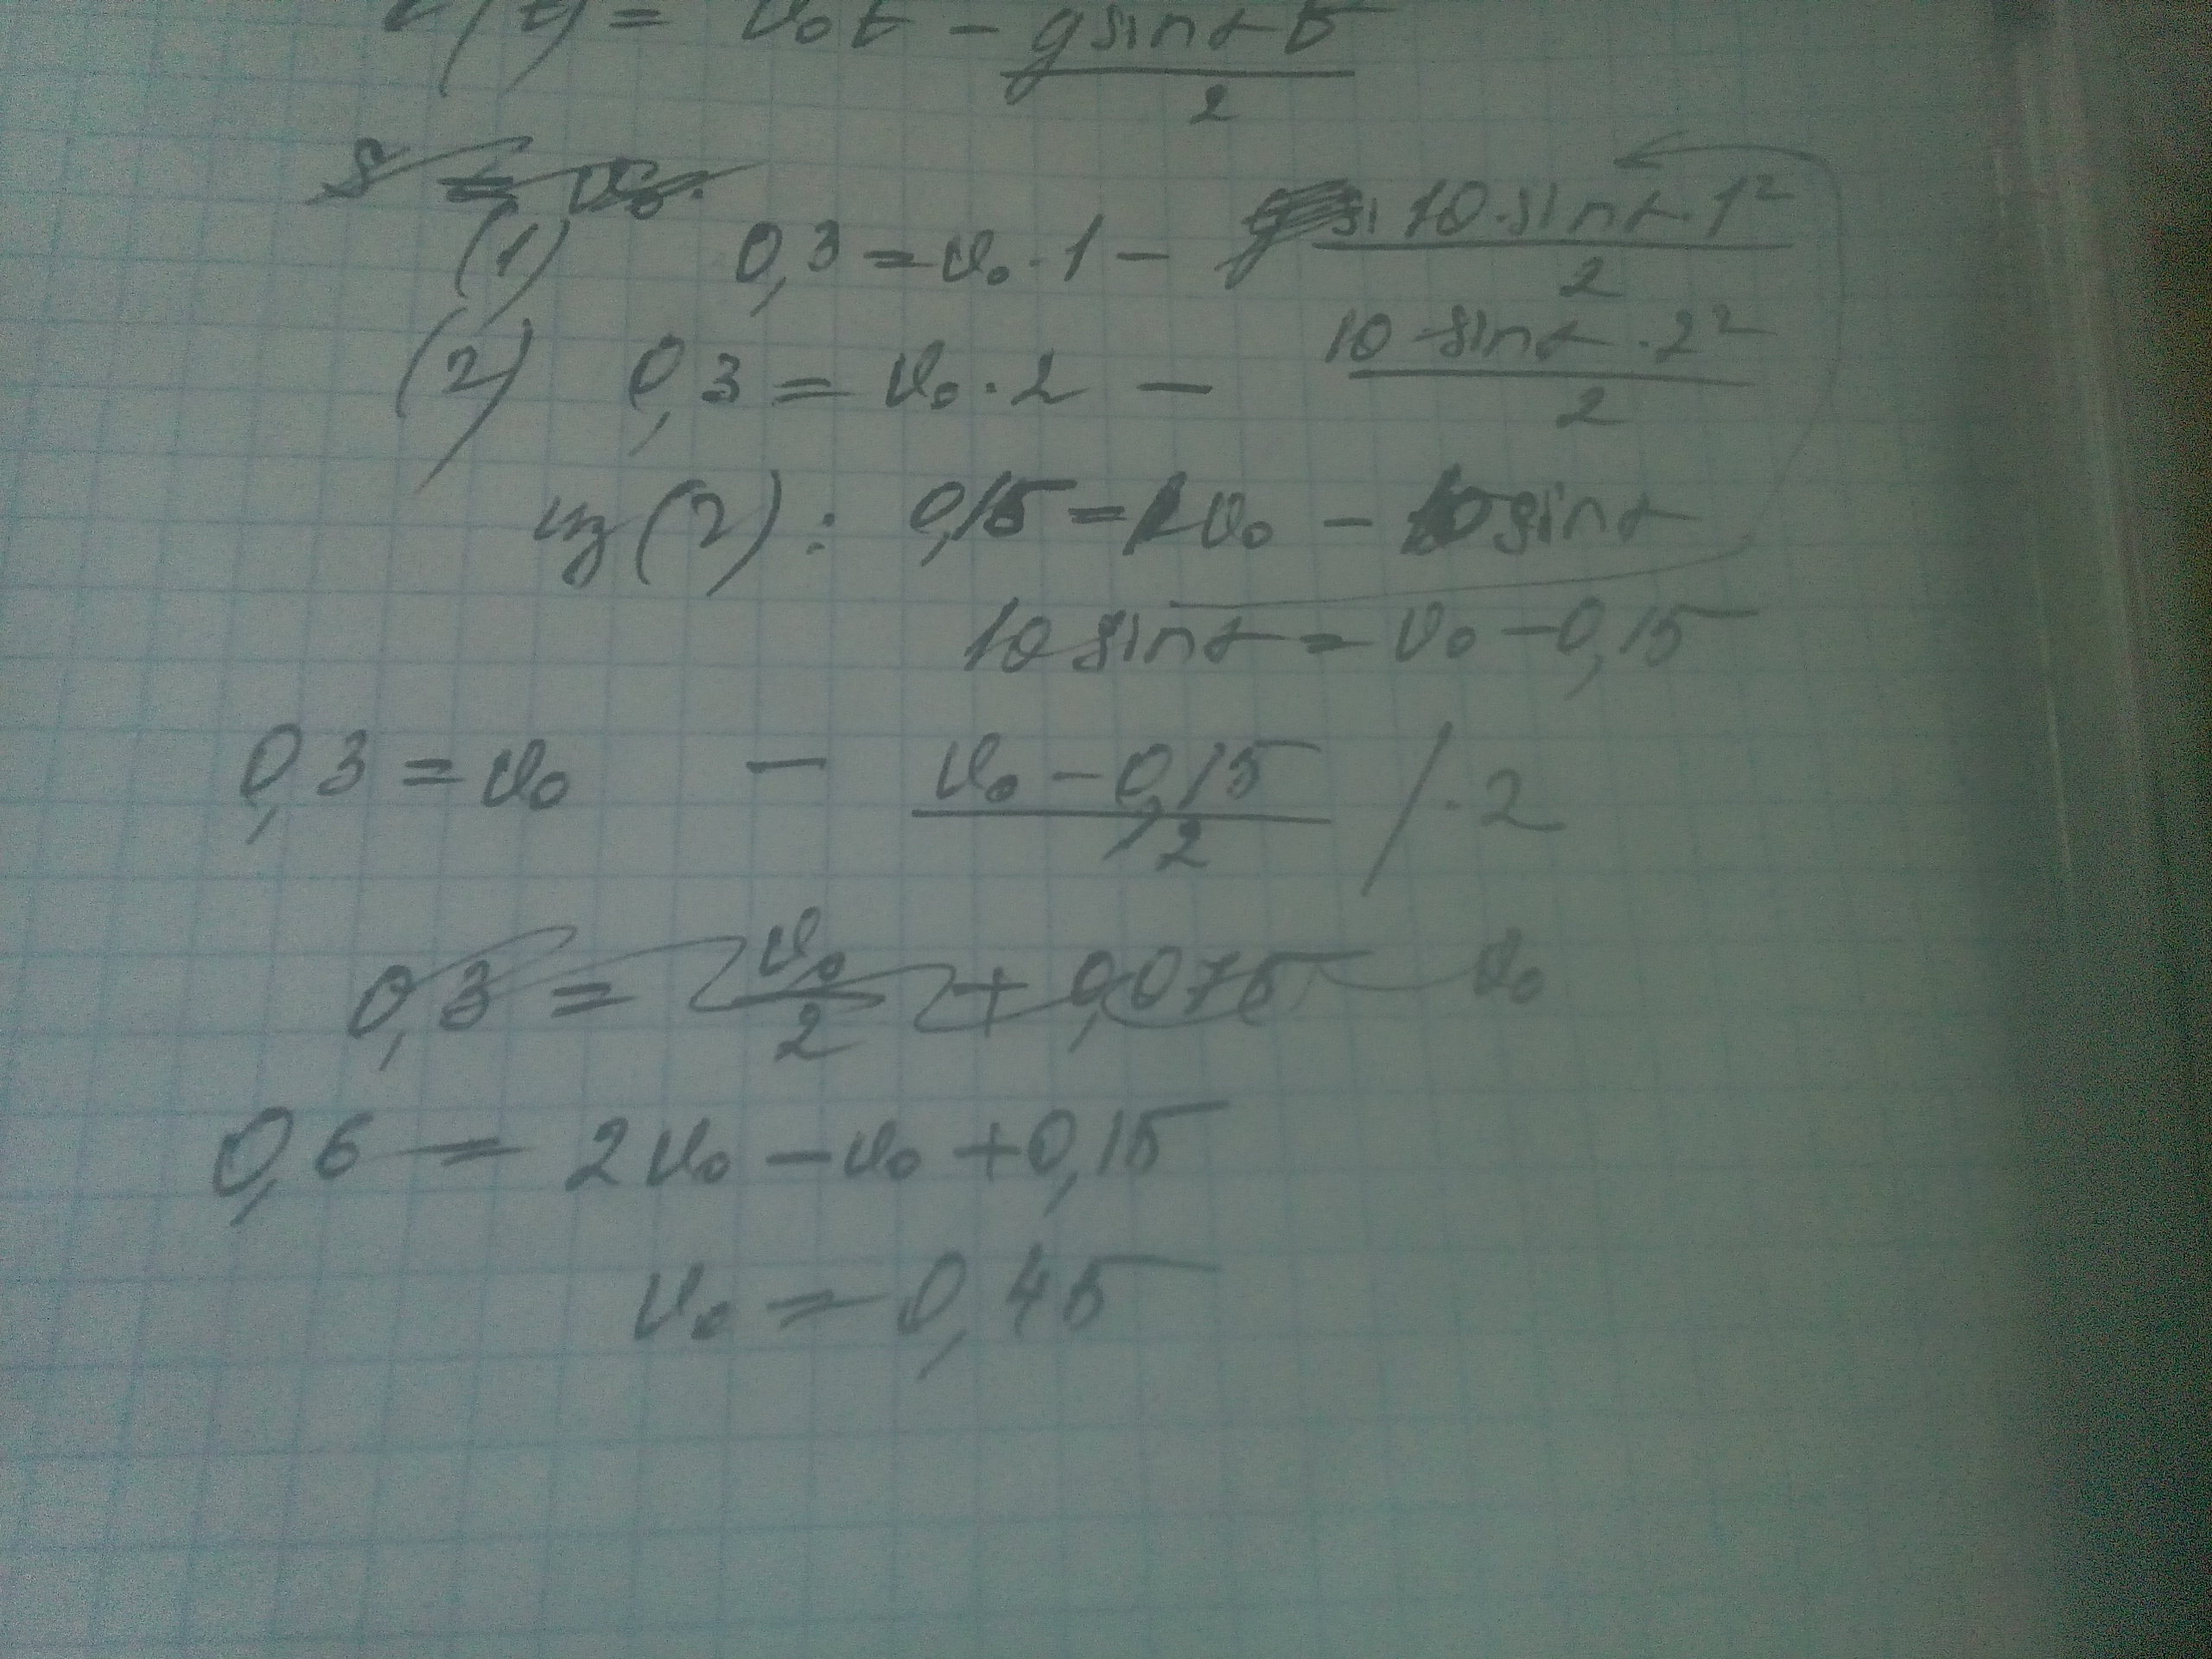 (t) = v₀t - g sinα t / 2
(1) 0,3 = v₀ · 1 - 10 · sinα · 1² / 2
(2) 0,3 = v₀ · 2 - 10 sinα · 2² / 2
из (2): 0,15 = v₀ - 10 sinα
10 sinα = v₀ - 0,15
0,3 = v₀ - v₀ - 0,15 / 2 / · 2
0,3 = v₀ / 2 + 0,075 v₀
0,6 = 2v₀ - v₀ + 0,15
v₀ = 0,45